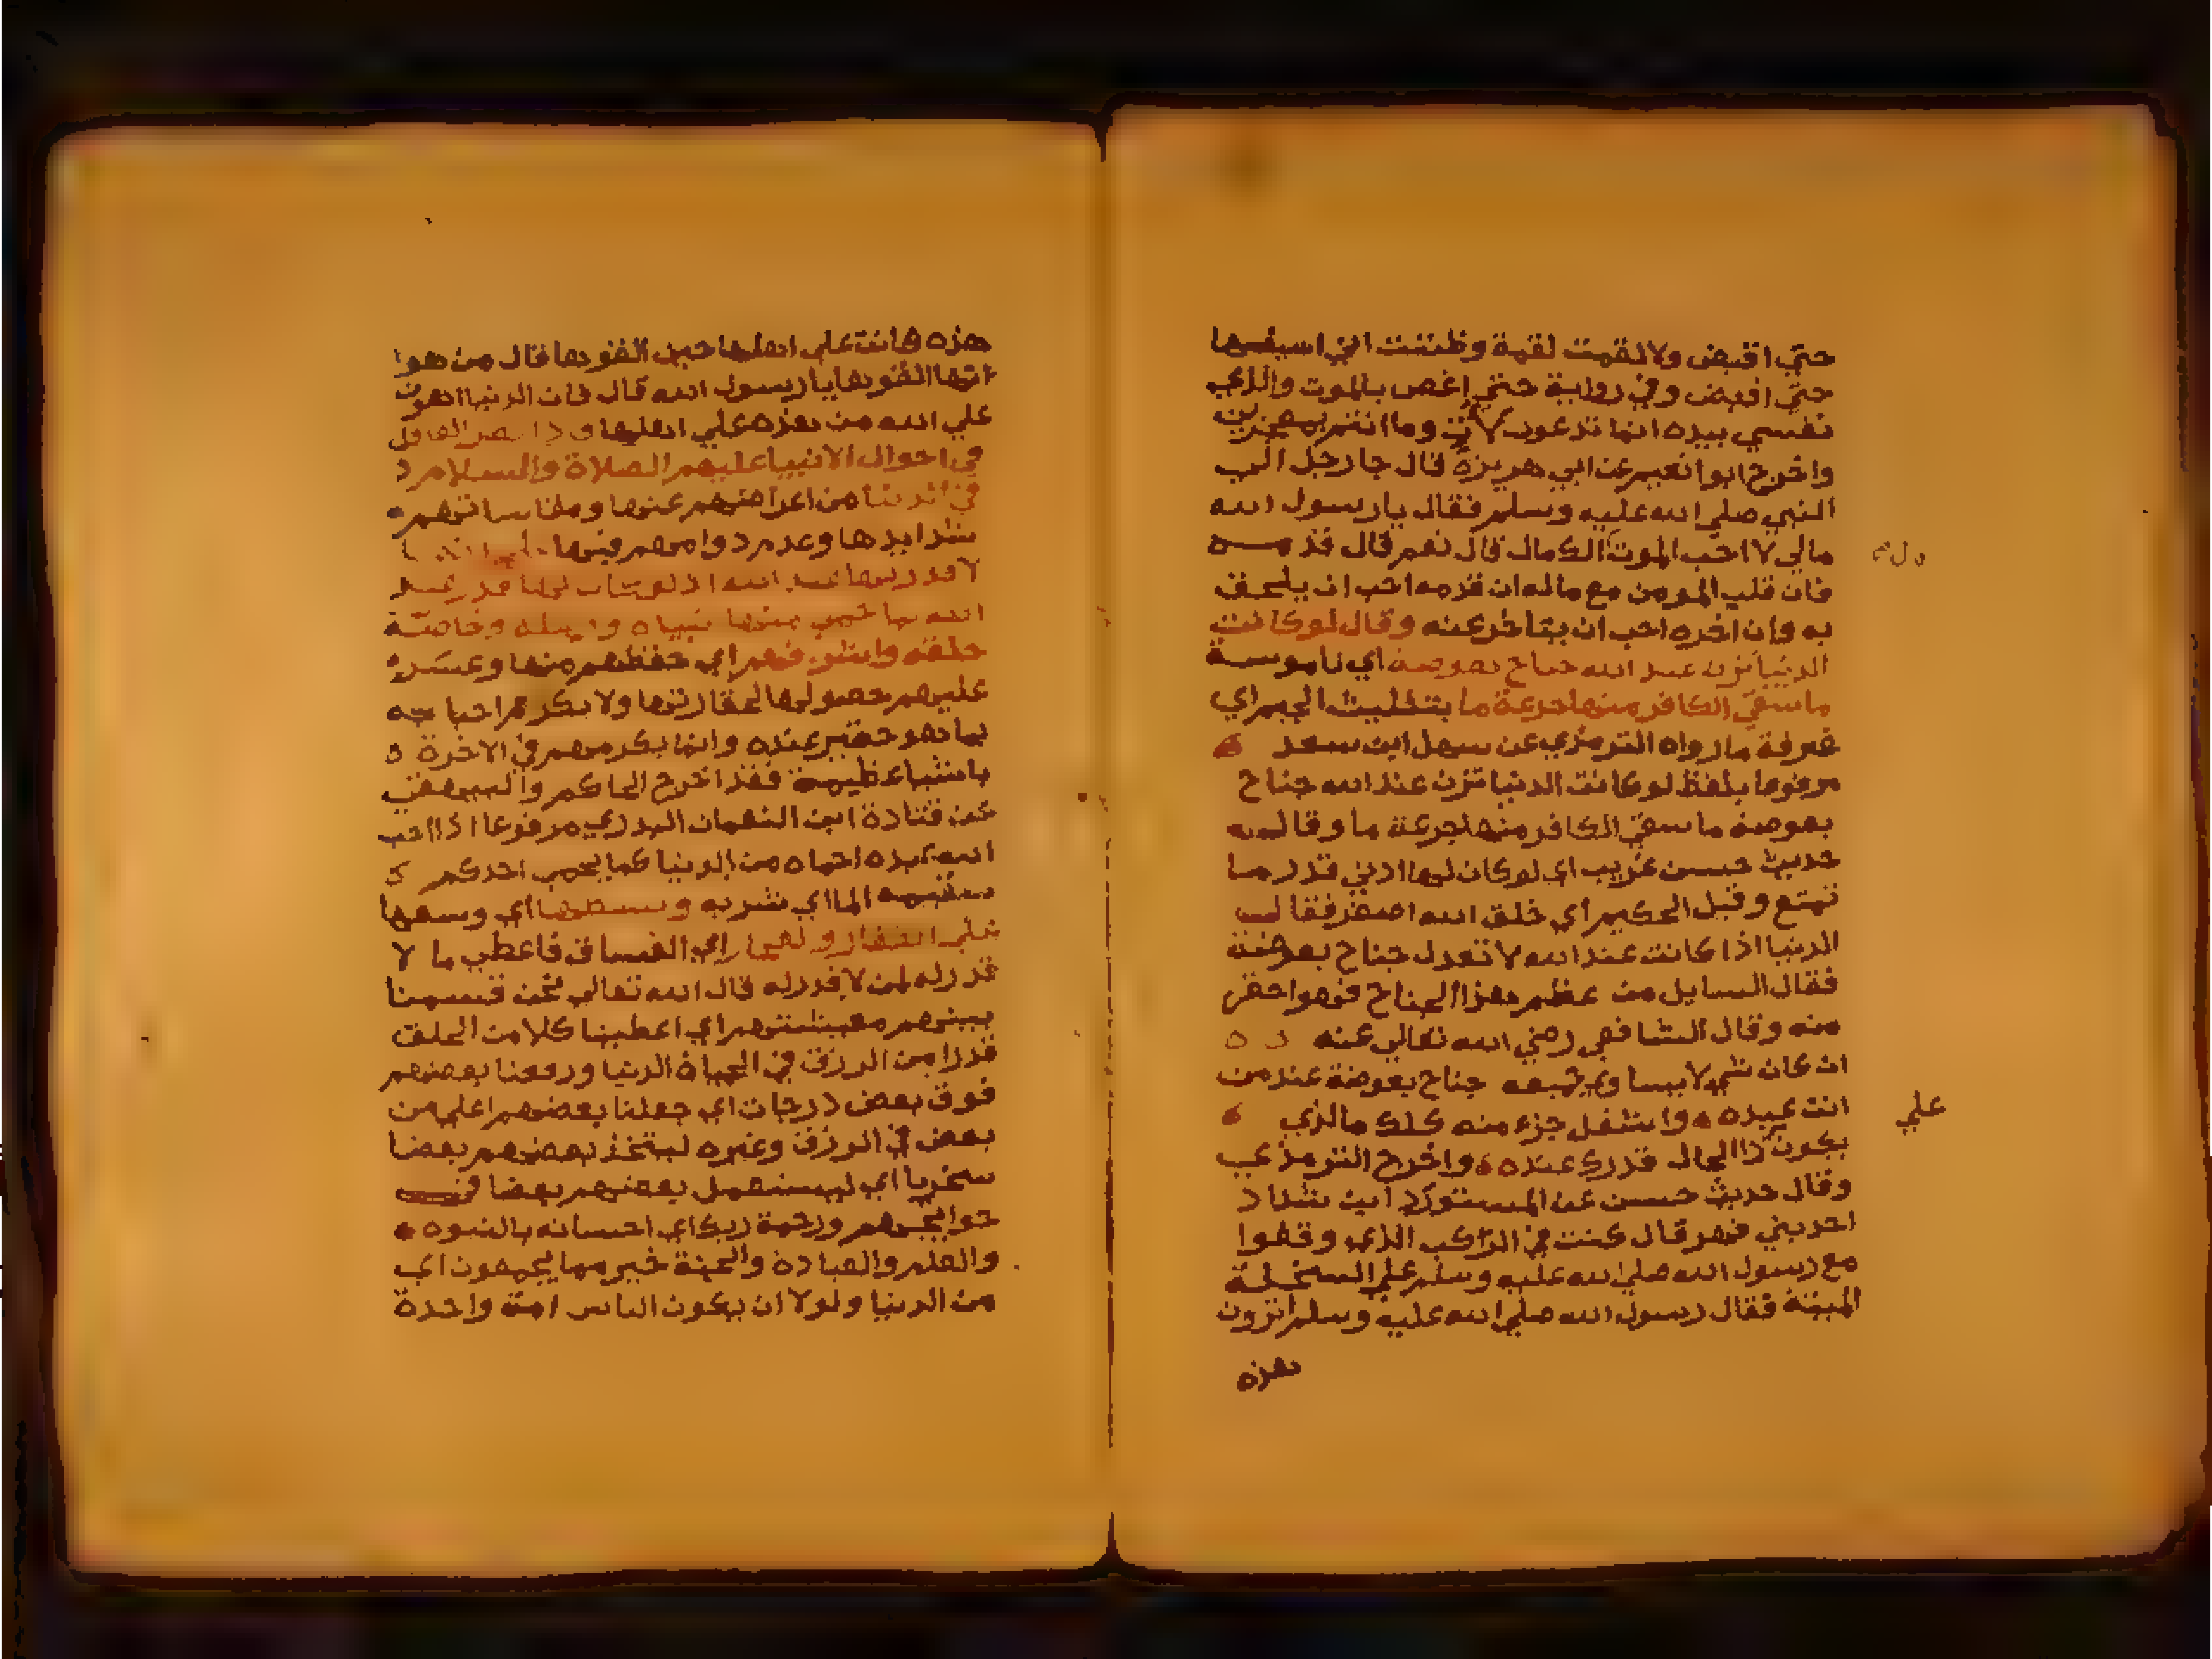 حتي اقبض ولا لقمت لقمة وظننت اني اسيغها
حتي اقبض وفي رواية حتي اغص بالموت والذي
نفسي بيده انما توعدون لات وما انتم بمعجزين
واخرج ابوا نعيم عن ابي هريرة قال جا رجل الي
النبي صلي الله عليه وسلم فقال يا رسول الله
مالي لا احب الموت الك مال قال نعم قال قدمه
فان قلب المومن مع ماله ان قدمه احب ان يلحق
به وان اخره احب ان يتاخر عنه وقال لو كانت
الدنيا تزن عند الله جناح بعوضة اي ناموسة
ما سقي الكافر منها جرعة ما بتثليث الجيم اي
غرفة ما رواه الترمذي عن سهل ابن سعد
مرفوعا بلفظ لو كانت الدنيا تزن عند الله جناح
بعوضة ما سقي الكافر منها جرعة ما وقال
حديث حسن غريب اي لو كان لها ادني قدر ما
تمتع وقيل الحكيم اي خلق الله اصغر فقال
الدنيا اذا كانت عند الله لا تعدل جناح بعوضة
فقال السايل من عظم هذا الجناح فهو احقر
منه وقال الشافعي رضي الله تعالي عنه
ان كان شي لا يساوي جميعه جناح بعوضة عند من
علي
انت عبده واشغل جزء منه كلك ما الذي
يكون ذا الحال قدرك عنده واخرج الترمذي
وقال حديث حسن عن المستورد ابن شداد
احد بني فهر قال كنت في الراكب الذي وقفوا
مع رسول الله صلي الله عليه وسلم علي السخلة
الميتة فقال رسول الله صلي الله عليه وسلم اترون
هذه
هذه هانت علي اهلها حين القوها قال من هوا
انها القوها يا رسول الله قال فان الدنيا اهون
علي الله من هذه علي اهلها
في احوال الانبيا عليهم الصلاة والسلام
في الدنيا من اعراضهم عنها ومقاساتهم
شدايدها وعدم دوامهم فيها
لا قدر لها عند الله اذ لو كان لها قدر عند
الله ما حمي منها نبياه ورسله وخاصة
خلقه فهم اي حفظهم منها وعسر
عليهم حصولها لحقارتها ولا يكرم احبابه
بما هو حقير عنده وانما يكرمهم في الاخرة
باشيا عظيمة فقد اخرج الحاكم والبيهقي
عن قتادة ابن النعمان البدري مرفوعا اذا احب
الله عبده احماه من الدنيا كما يحمي احدكم
سقيمه الما اي شربه وبسطها اي وسعها
علي الكفار والفجار اي الفساق فاعطي ما لا
قدر له لمن لا قدر له قال الله تعالي نحن قسمنا
بينهم معيشتهم اي اعطينا كلا من الخلق
قدرا من الرزق في الحياة الدنيا ورفعنا بعضهم
فوق بعض درجات اي جعلنا بعضهم اعلي من
بعض في الرزق وغيره ليتخذ بعضهم بعضا
سخريا اي ليستعمل بعضهم بعضا في
حوايجهم ورحمة ربك اي احسانه بالنبوه
والعلم والعبادة والجنة خير مما يجمعون اي
من الدنيا ولولا ان يكون الناس امة واحدة